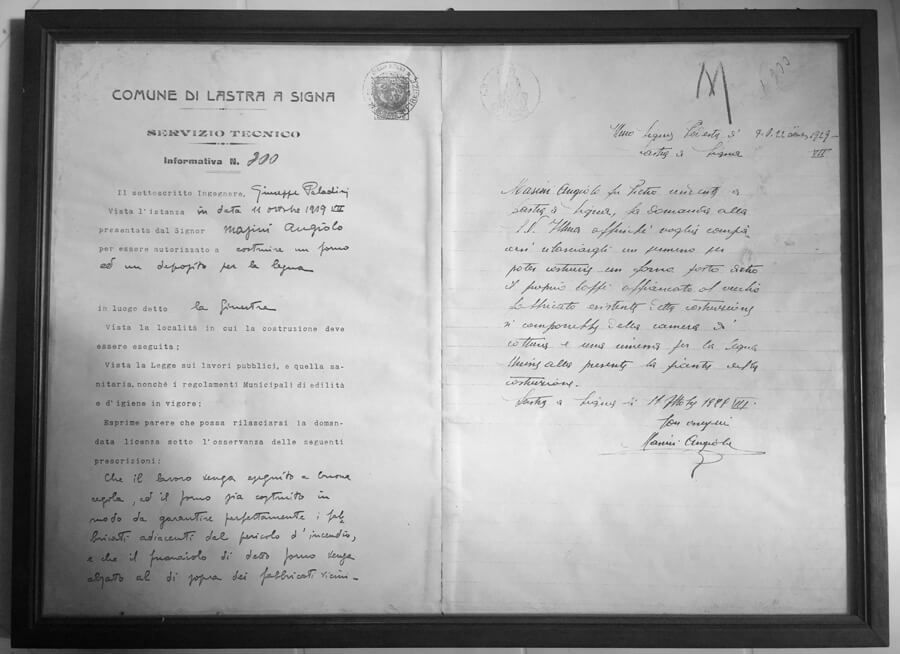 COMUNE DI LASTRA A SIGNA
SERVIZIO TECNICO
Informativa N. 200
Il sottoscritto Ingegnere, Giuseppe Paladini
Vista l'istanza in data 11 ottobre 1929 VII
presentata dal Signor Masini Angiolo
per essere autorizzato a costruire un forno
ed un deposito per la legna
in luogo detto la Ginestra
Vista la località in cui la costruzione deve
essere eseguita;
Vista la Legge sui lavori pubblici, e quella sa-
nitaria, nonchè i regolamenti Municipali di edilità
e d'igiene in vigore;
Esprime parere che possa rilasciarsi la doman-
data licenza sotto l'osservanza delle seguenti
prescrizioni:
Che il lavoro venga eseguito a buona
regola, ed il forno sia costruito in
modo da garantire perfettamente i fab-
bricati adiacenti dal pericolo d'incendio,
e che il fumaiolo di detto forno venga
alzato al di sopra dei fabbricati vicini-
M
Illmo Signor Podestà di
Lastra a Signa VII
Masini Angiolo fu Pietro residente a
Lastra a Signa, fa domanda alla
S.S. Illma affinché voglia compia
cersi rilasciargli un permesso per
poter costruire un forno posto dietro
il proprio affiancato al vecchio
fabbricato esistente detta costruzione
si comporrebbe della camera di
cottura e una rimessa per la legna
Unisce alla presente la pianta della
costruzione.
Lastra a Signa li 11 Ottobre 1929 VII.
Con ossequi
Masini Angiolo